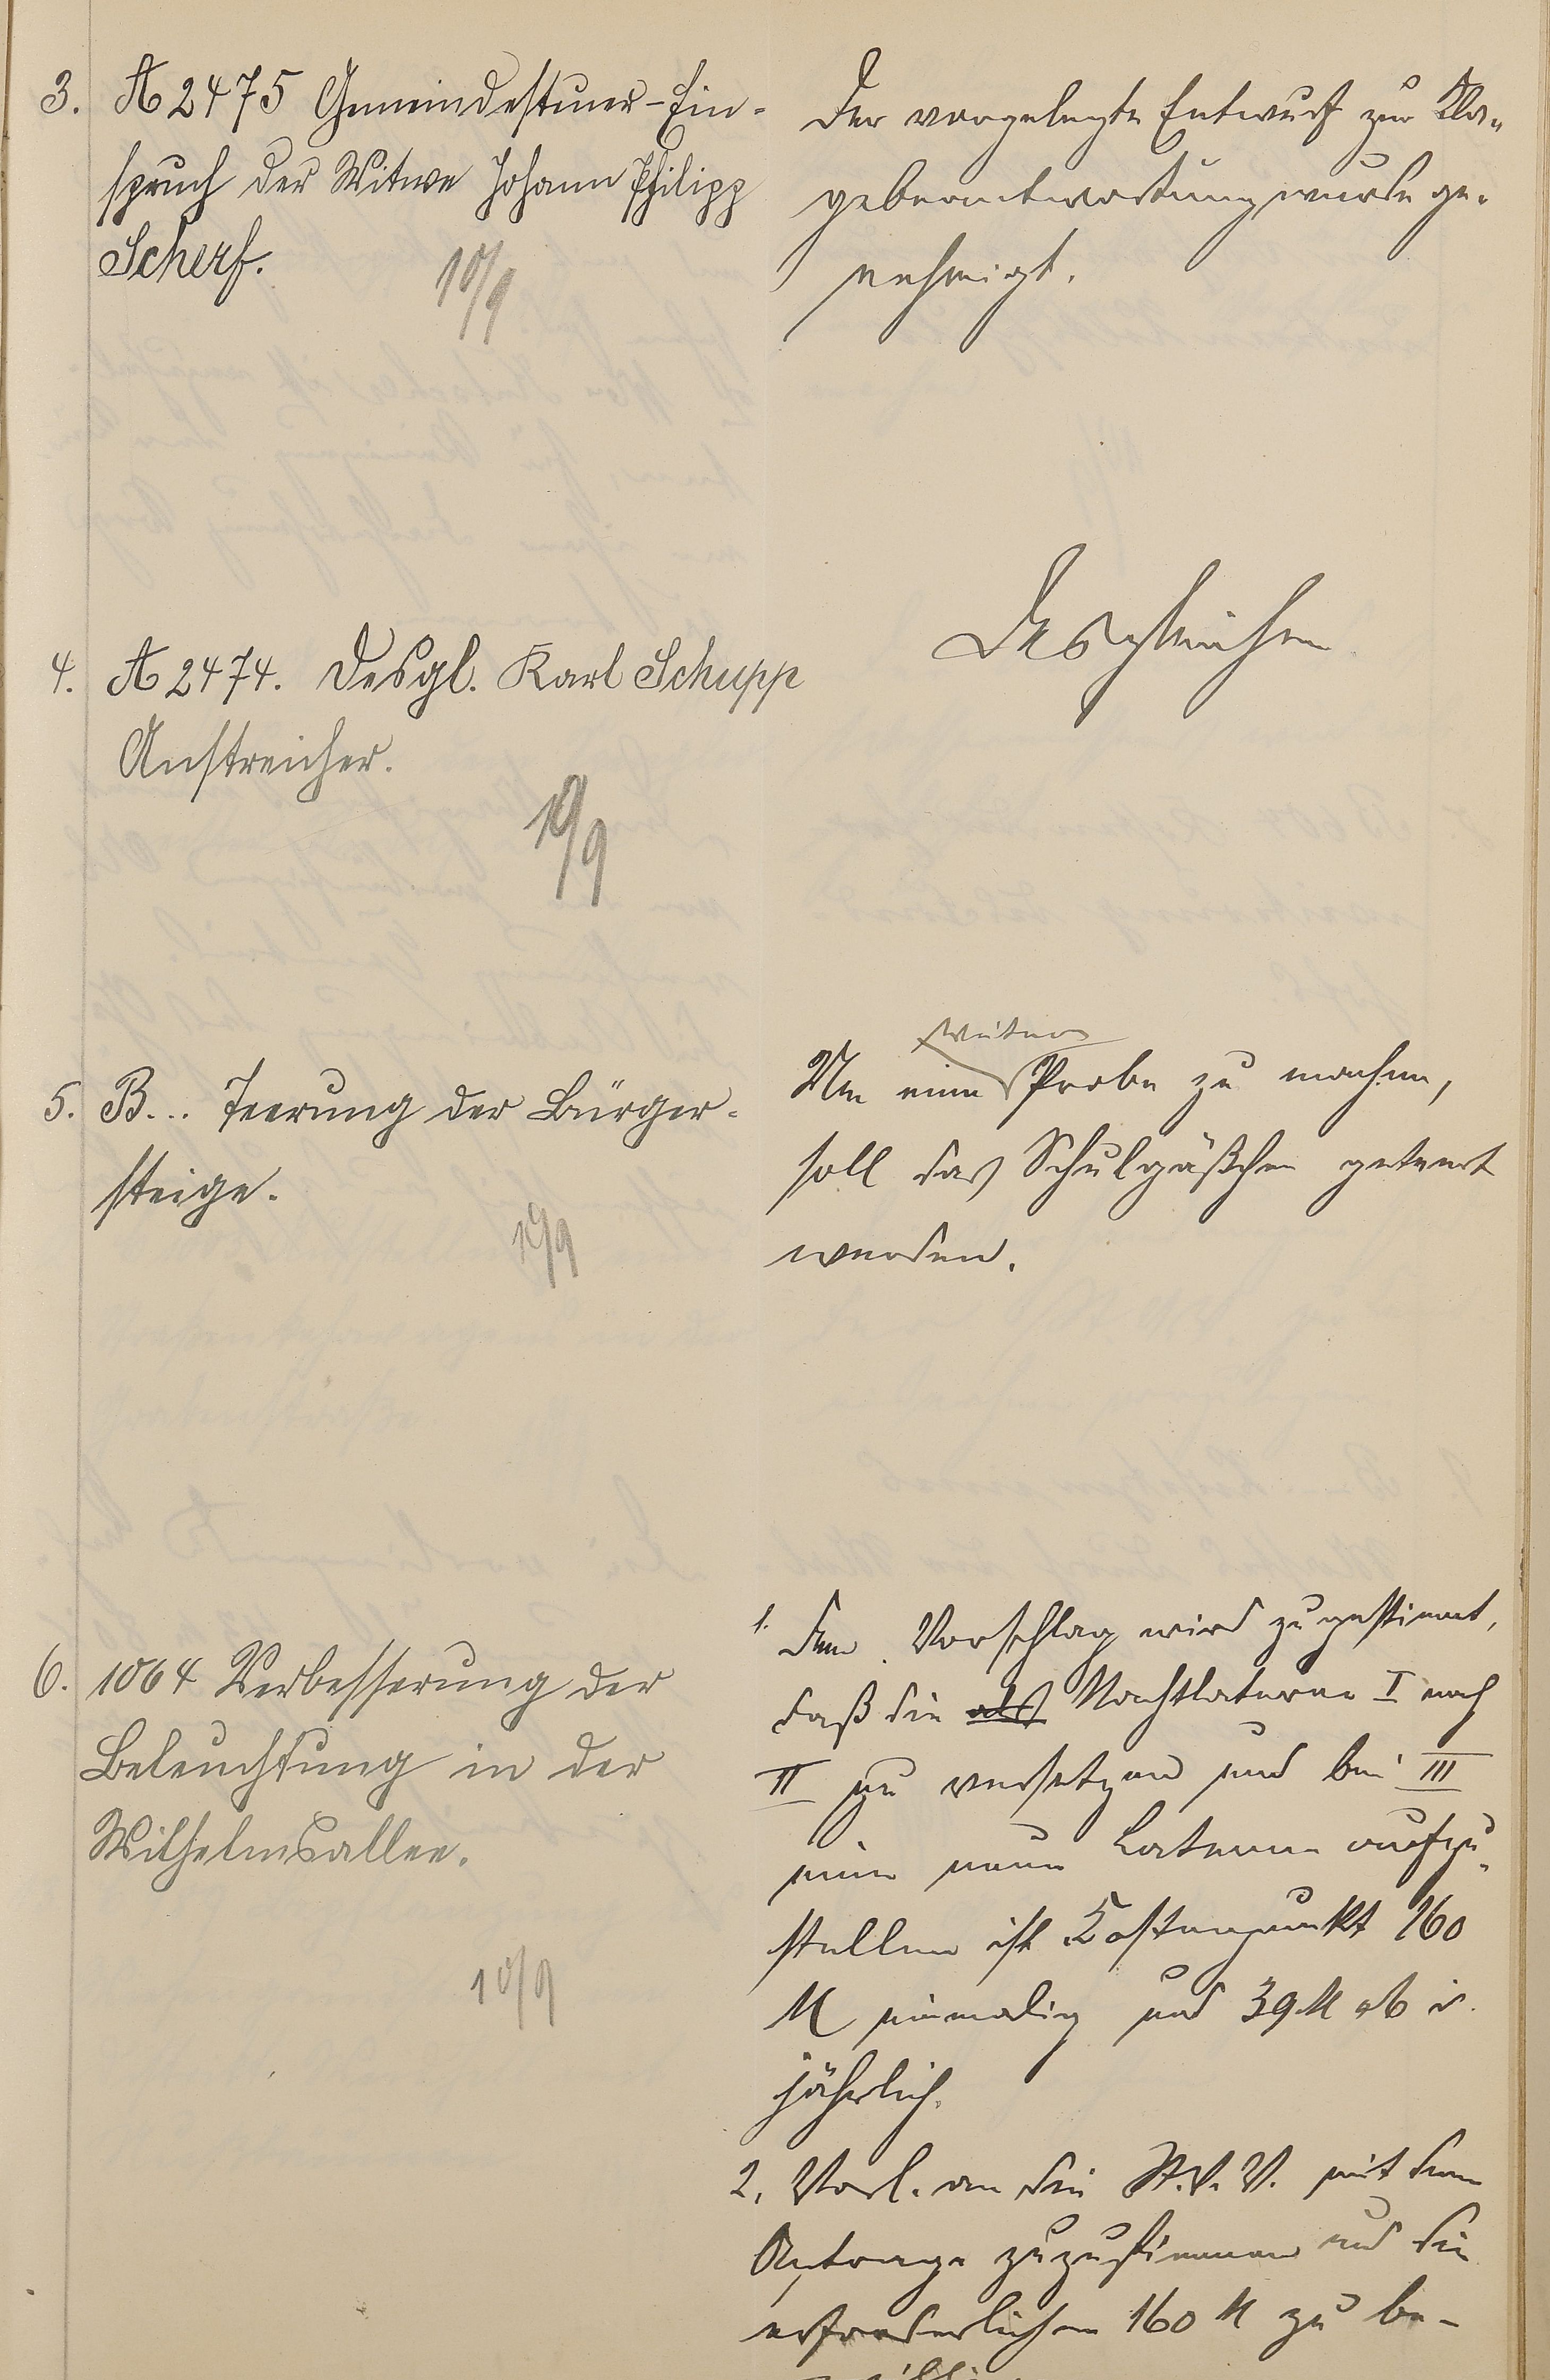 3. A 2475 Gemeindesteuer-Ein-
spruch der Witwe Johann Philipp
Scherf.
10/9
Der vorgelegte Entwurf zur Kla-
gebeantwortung wurde ge-
nehmigt.
4. A 2474. Desgl. Karl Schupp
Anstreicher.
10/9
Desgleichen
5. B... Teerung der Bürger-
steige.
10/9
weitere
Um eine Probe zu machen,
soll das Schulgäßchen geteert
werden.
6. 1064 Verbesserung der
Beleuchtung in der
Wilhelmsallee.
10/9
1. Dem Vorschlag wird zugestimmt,
daß die als Nachtlaterne I nach
II zu versetzen und bei III
eine neue Laterne aufzu-
stellen ist Kostenpunkt 160
M einmalig und 39 M
jährlich.
2. Vorl. an die St.V.V. mit dem
Antrage zuzustimmen und die
erforderlichen 160 M zu be-